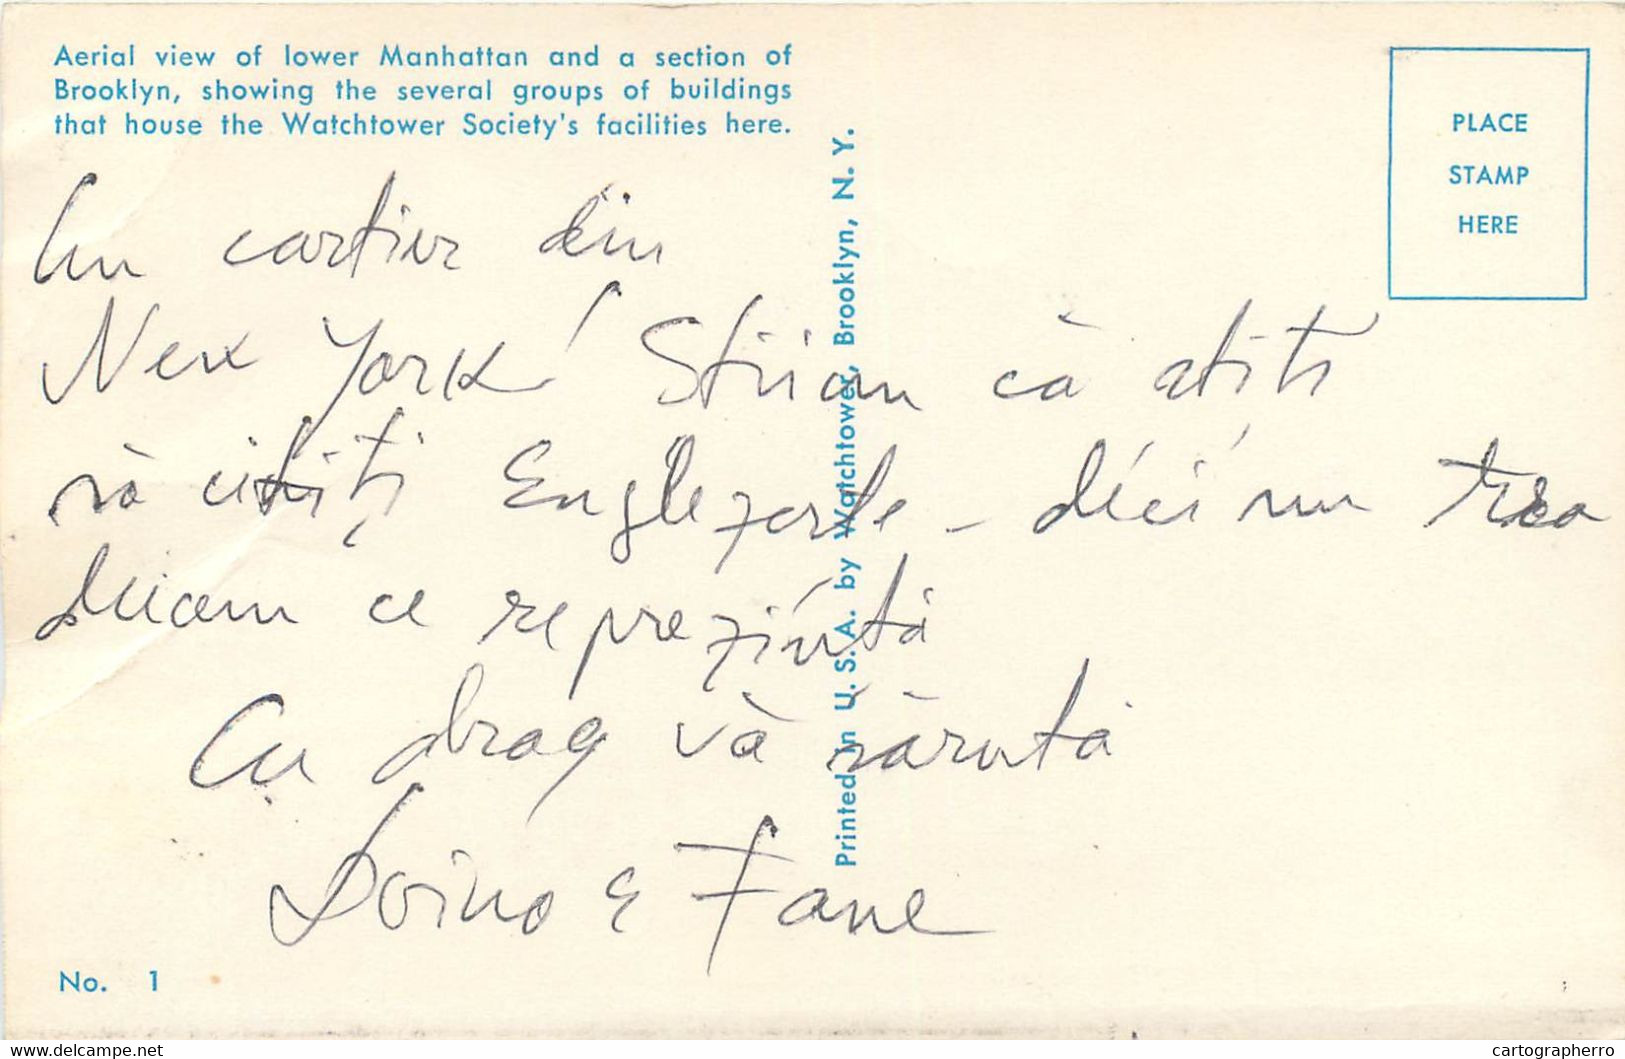 Aerial view of lower Manhattan and a section of
Brooklyn, showing the several groups of buildings
that house the Watchtower Society's facilities here.
PLACE
STAMP
HERE
Un cartier din
New York! Știam că știți
să citiți Englezeşte – deci nu
ce reprezintă
Cu drag vă sărută
Doina & Fane
Printed in U. S. A. by Watchtower, Brooklyn, N. Y.
No. 1
www.delcampe.net
cartographerro